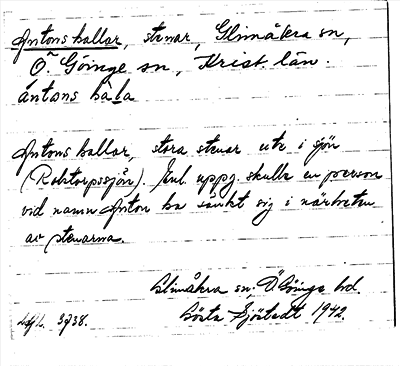 Antons hallar, stenar, Glimåkra sn,
Ö. Göinge sn, Krist. län.
ántons hàla
Antons hallar, stora stenar ute i sjön
(Raktorpssjön). Enl. uppg. skulle en person
vid namn Anton ha sänkt sig i närheten
av stenarna.
Glimåkra sn, Ö Göinge hd.
Gösta Sjöstedt 1942.
3738.